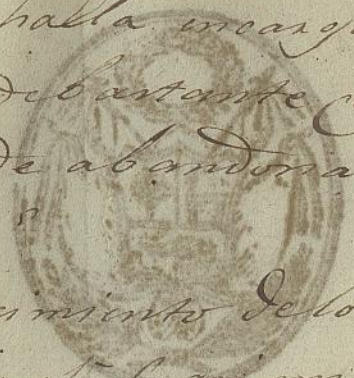 halla encarg
de bastante C
de abandona
cimiento de lo